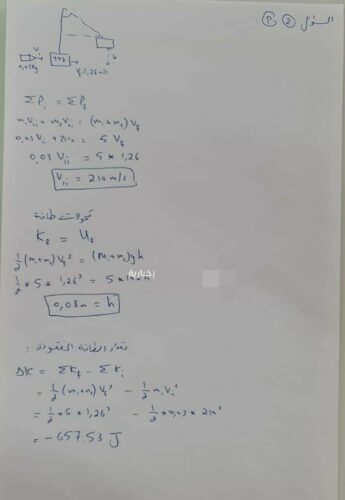 السؤال ② P
V
h
0,03kg
4.97
V=1,26m/s
ΣPᵢ = ΣP_f
m₁V₁ᵢ + m₂V₂ᵢ = (m₁+m₂)V_f
0,03 V₁ᵢ + Zero = 5 V_f
0,03 V₁ᵢ = 5 × 1,26
V₁ᵢ = 210 m/s
تحولات طاقة
K_f = U_f
½(m₁+m₂)V_f² = (m₁+m₂)gh
½ × 5 × 1,26² = 5 × 10 × h
0,08m = h
إخبارية
مقدار الطاقة المفقودة :
ΔK = ΣK_f − ΣKᵢ
= ½(m₁+m₂)V_f² − ½ m₁V₁ᵢ²
= ½ × 5 × 1,26² − ½ × 0,03 × 210²
= −657.53 J